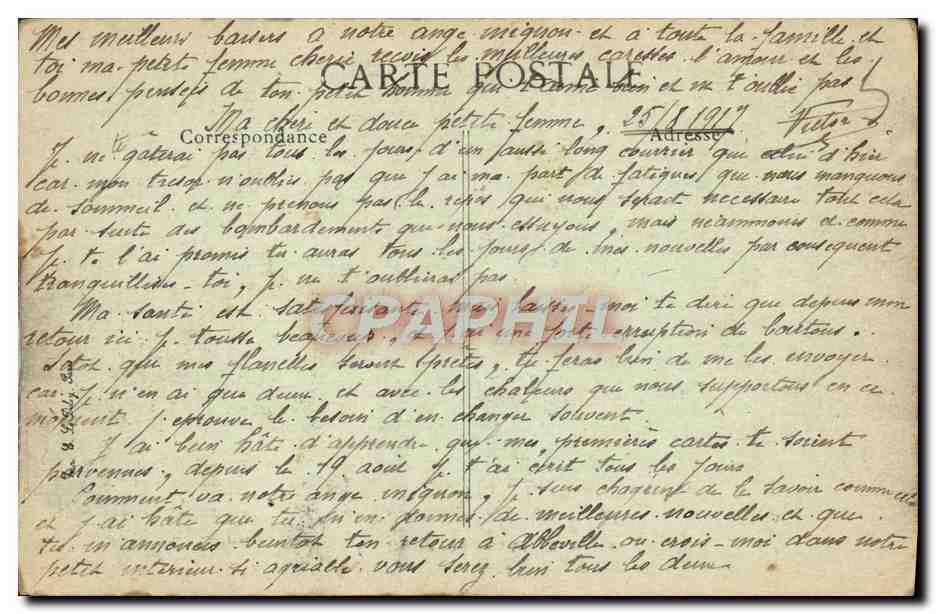 Mes meilleurs baisers a notre ange mignon et à toute la famille et
toi ma petit femme cherie recois les meilleures caresses l'amour et les
CARTE POSTALE
bonnes pensées de ton petit homme qui t'aime bien et ne t'oubli pas
Ma cheri et douce petite femme, 25/8/1917 Victor
Correspondance Adresse
Je ne gâterai pas tous les jours d'un aussi long courrier que celui d'hier
car mon tresor n'oublies pas que j'ai ma part de fatigues que nous manquons
de sommeil et ne prenons pas le repos qui nous serait necessaire tout cela
par suite des bombardements que nous essuyons, mais neammoins et comme
je te l'ai promis tu auras tous les jours de mes nouvelles par consequent
tranquillises-toi, je ne t'oublirai pas
Ma santé est satisfaisante moi te dire que depuis mon
retour ici je tousse beaucoup et j'ai une forte erruption de boutons.
Sitot que mes flanelles seront prêtes, tu feras bien de me les envoyer
car je n'en ai que deux et avec les chaleurs que nous supportons en ce
moment j'eprouve le besoin d'en changer souvent
J'ai bien hâte d'apprendre que mes premières cartes te soient
parvenues, depuis le 19 aout je t'ai ecrit tous les jours
Comment va notre ange mignon, je suis chagrin de le savoir comme
et j'ai hâte que tu m'en donnes de meilleures nouvelles et que
tu m'annonces bientot ton retour à Abbeville ou crois-moi dans notre
petit interieur si agriable vous serez bien tous les deux
CPAPHIL